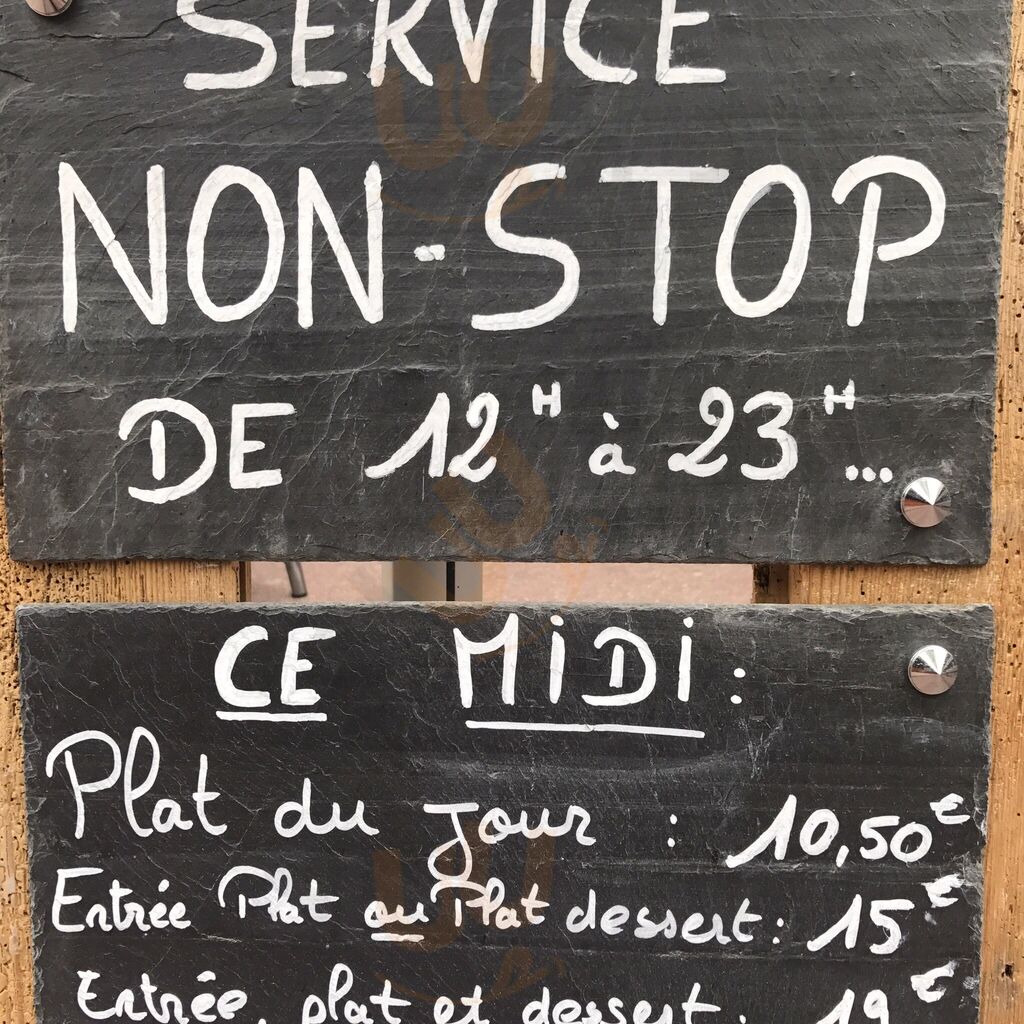 SERVICE
NON-STOP
DE 12H à 23H...
CE MIDI :
Plat du jour : 10,50€
Entrée Plat ou Plat dessert : 15€
Entrée, plat et dessert : 19€